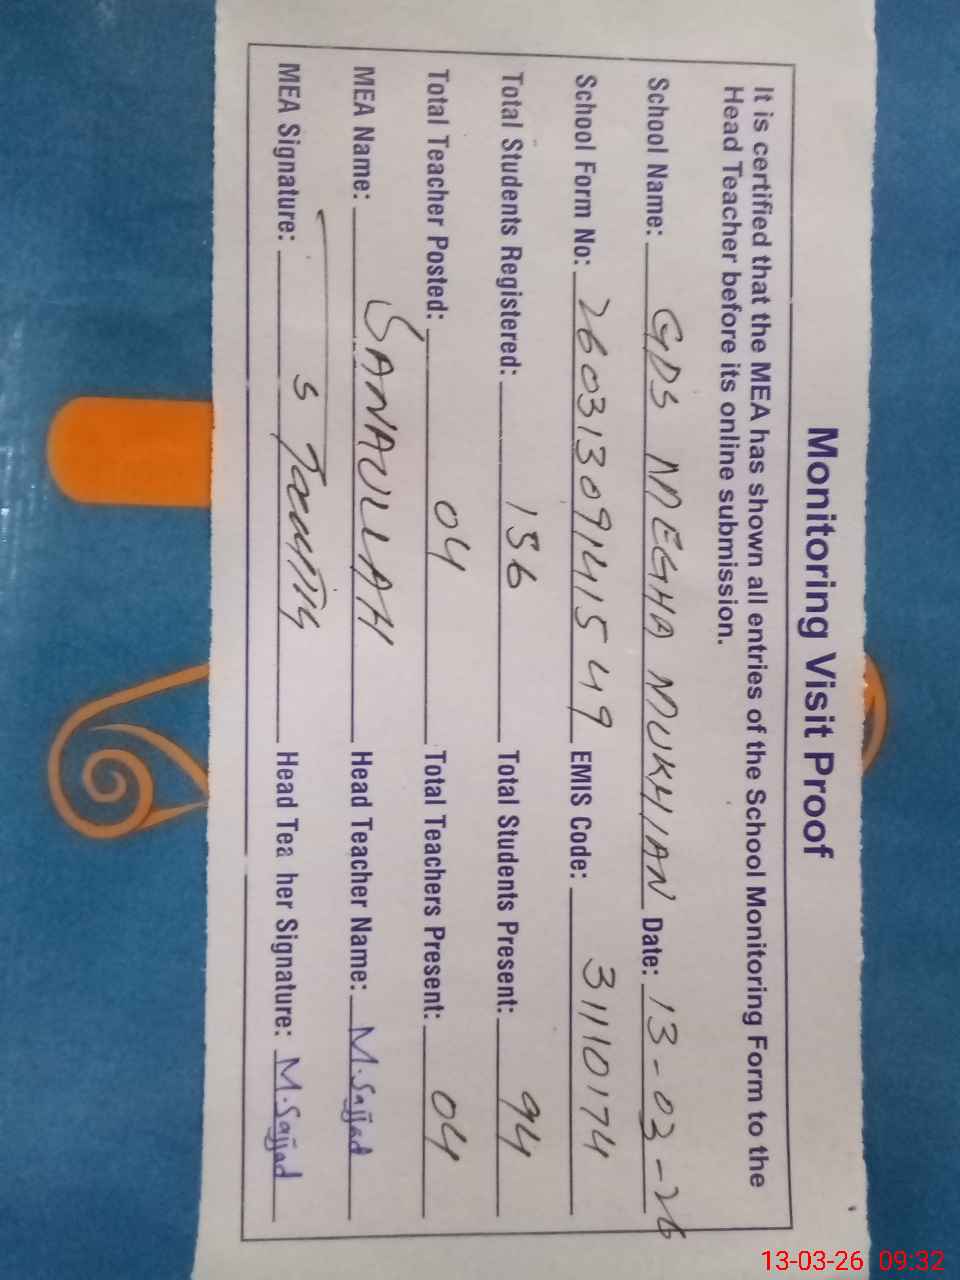 Monitoring Visit Proof
It is certified that the MEA has shown all entries of the School Monitoring Form to the
Head Teacher before its online submission.
School Name: GPS MEGHA MUKHIAN Date: 13-03-26
School Form No: 260313091411549 EMIS Code: 31110174
Total Students Registered: 156 Total Students Present: 94
Total Teacher Posted: 04 Total Teachers Present: 04
MEA Name: SANAULLAH Head Teacher Name: M.Sajjad
MEA Signature: Head Tea her Signature: M.Sajjad
13-03-26 09:32